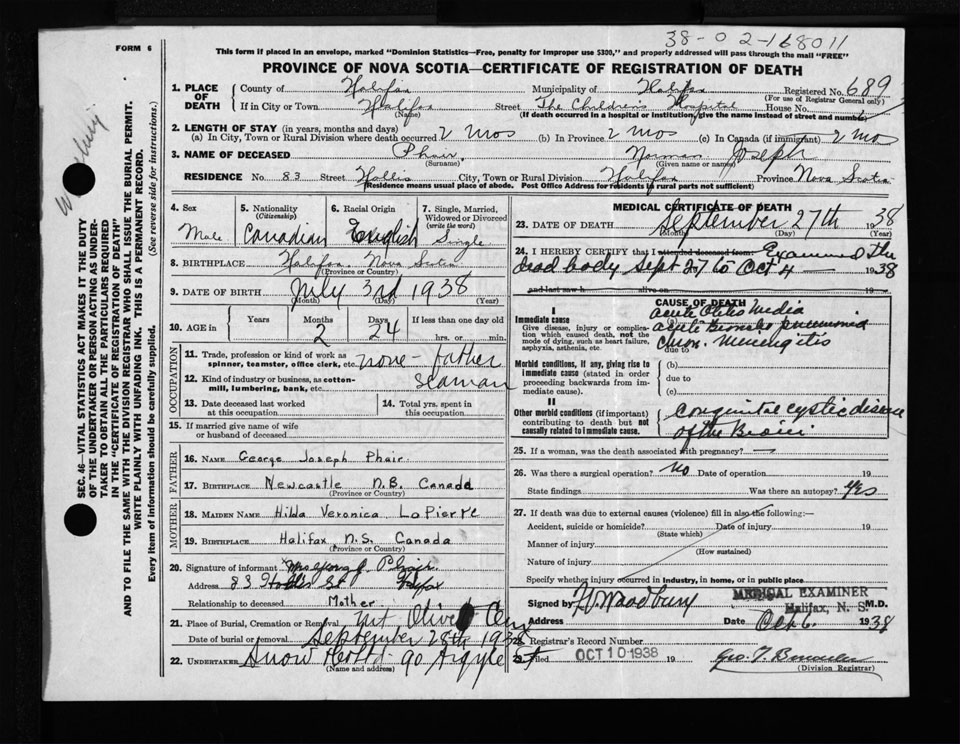 38-02-168011
FORM 6
This form if placed in an envelope, marked "Dominion Statistics—Free, penalty for improper use $300," and properly addressed will pass through the mail "FREE"
PROVINCE OF NOVA SCOTIA—CERTIFICATE OF REGISTRATION OF DEATH
SEC. 46—VITAL STATISTICS ACT MAKES IT THE DUTY
OF THE UNDERTAKER OR PERSON ACTING AS UNDER-
TAKER TO OBTAIN ALL THE PARTICULARS REQUIRED
IN THE "CERTIFICATE OF REGISTRATION OF DEATH"
AND TO FILE THE SAME WITH THE DIVISION REGISTRAR WHO SHALL ISSUE THE BURIAL PERMIT.
WRITE PLAINLY WITH UNFADING INK. THIS IS A PERMANENT RECORD.
Every item of information should be carefully supplied. (See reverse side for instructions.)
1. PLACE OF DEATH County of Halifax Municipality of Halifax Registered No. 689
(For use of Registrar General only)
If in City or Town Halifax Street The Children's Hospital House No.
(Name) (If death occurred in a hospital or institution, give the name instead of street and number)
2. LENGTH OF STAY (in years, months and days)
(a) In City, Town or Rural Division where death occurred 2 mos (b) In Province 2 mos (c) In Canada (if immigrant) 2 mos
3. NAME OF DECEASED Phair, Norman Joseph
(Surname) (Given name or names)
RESIDENCE No. 83 Street Hollis City, Town or Rural Division Halifax Province Nova Scotia
(Residence means usual place of abode. Post Office Address for residents in rural parts not sufficient)
4. Sex Male
5. Nationality (Citizenship) Canadian
6. Racial Origin English
7. Single, Married, Widowed or Divorced (write the word) Single
8. BIRTHPLACE Halifax Nova Scotia
(Province or Country)
9. DATE OF BIRTH July 3rd 1938
(Month) (Day) (Year)
10. AGE in Years Months 2 Days 24 If less than one day old
hrs. or min.
OCCUPATION
11. Trade, profession or kind of work as spinner, teamster, office clerk, etc. none - father
12. Kind of industry or business, as cotton-mill, lumbering, bank, etc. seaman
13. Date deceased last worked at this occupation
14. Total yrs. spent in this occupation
15. If married give name of wife or husband of deceased
FATHER
16. Name George Joseph Phair
17. Birthplace Newcastle N.B. Canada
(Province or Country)
MOTHER
18. Maiden Name Hilda Veronica LaPierre
19. Birthplace Halifax N.S. Canada
(Province or Country)
20. Signature of informant Mrs George J. Phair
Address 83 Hollis St Halifax
Relationship to deceased Mother
21. Place of Burial, Cremation or Removal Mt Olivet Cem
Date of burial or removal September 28th 1938
22. UNDERTAKER Snow & Co Ltd 90 Argyle St
(Name and address)
MEDICAL CERTIFICATE OF DEATH
23. DATE OF DEATH September 27th 1938
(Month) (Day) (Year)
24. I HEREBY CERTIFY that I attended deceased from: Examined the
dead body Sept 27 to Oct 4 1938
and last saw h alive on 19
CAUSE OF DEATH
I
Immediate cause
Give disease, injury or complication which caused death, not the mode of dying, such as heart failure, asphyxia, asthenia, etc.
Acute Otitis Media
acute broncho pneumonia
due to
Chron. Meningitis
Morbid conditions, if any, giving rise to immediate cause (stated in order proceeding backwards from immediate cause).
(b)
due to
(c)
II
Other morbid conditions (if important) contributing to death but not causally related to immediate cause.
Congenital cystic disease
of the
25. If a woman, was the death associated with pregnancy? —
26. Was there a surgical operation? No Date of operation 19
State findings Was there an autopsy? Yes
27. If death was due to external causes (violence) fill in also the following:—
Accident, suicide or homicide? Date of injury 19
(State which)
Manner of injury
(How sustained)
Nature of injury
Specify whether injury occurred in industry, in home, or in public place
Signed by F. V. Woodbury MEDICAL EXAMINER M.D.
Halifax, N. S.
Address Date Oct 6. 1938
Registrar's Record Number
Filed OCT 10 1938 19
(Division Registrar)